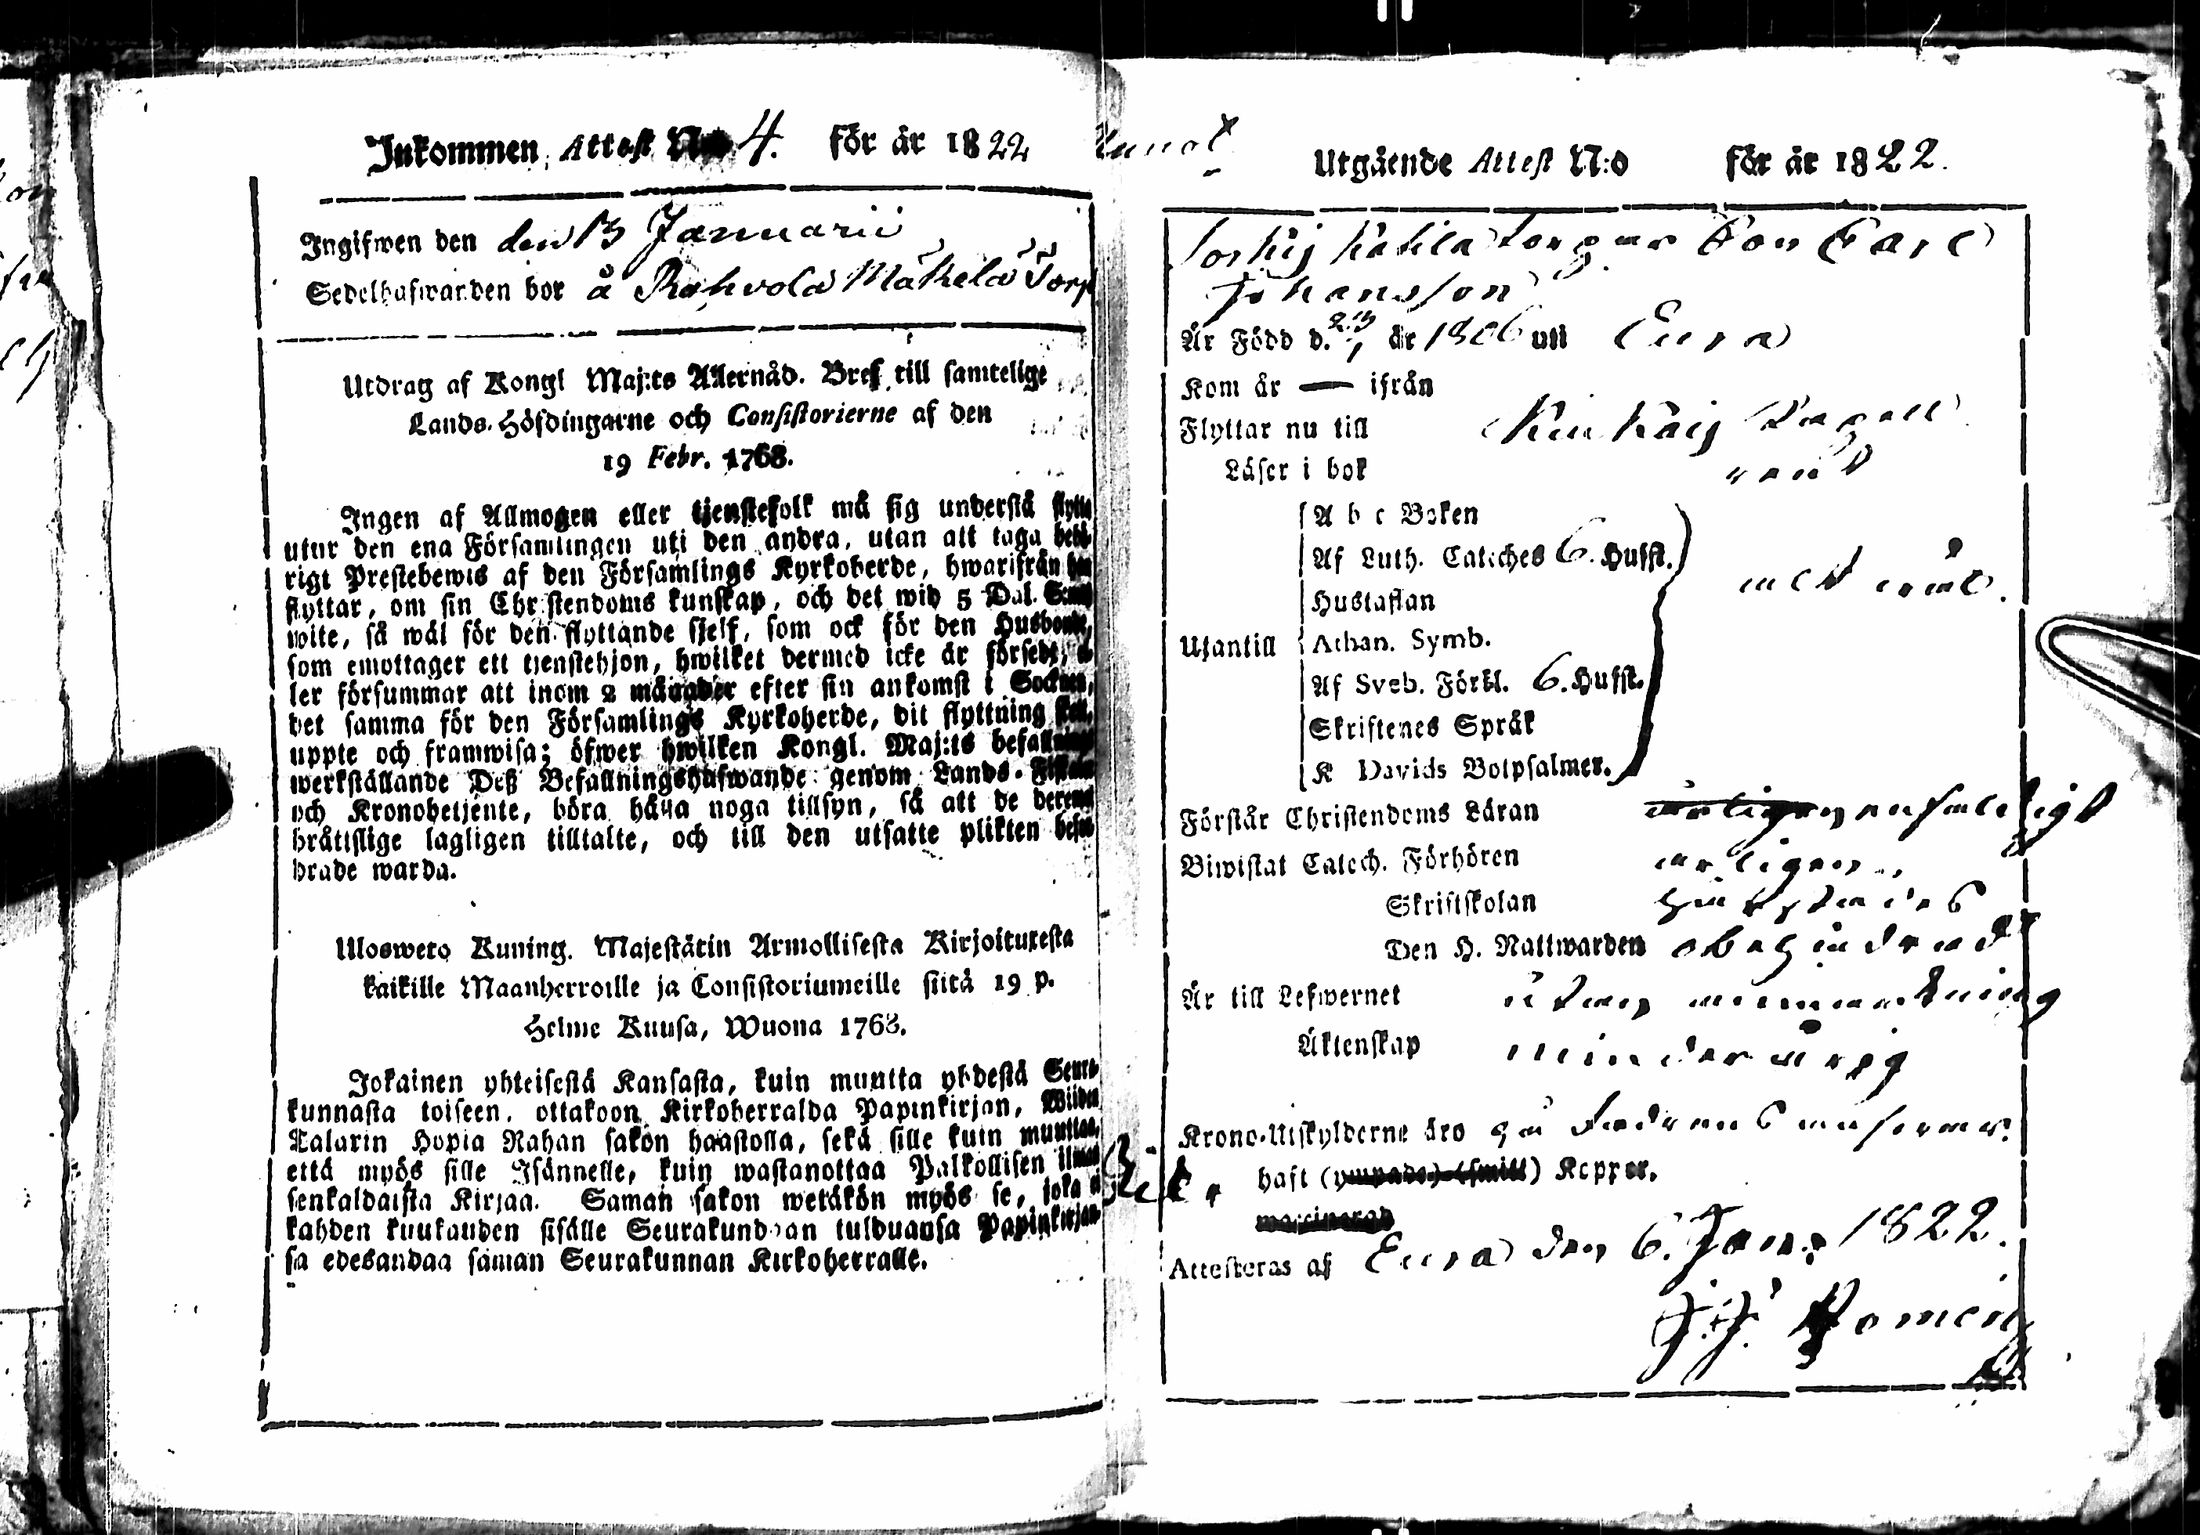 Inkommen Attest N:o 4. för år 1822
Ingifwen den den 13 Januarii
Sedelhafwanden bor å Rahvola Mäkelä Torp
Utdrag af Kongl Maj:ts Allernåd. Bref till samtelige
Lands-Höfdingarne och Consistorierne af den
19 Febr. 1768.
Ingen af Allmogen eller tjenstefolk må sig understå flytta
utur den ena Församlingen uti den andra, utan att taga behö-
rigt Prestebewis af den Församlings Kyrkoherde, hwarifrån han
flyttar, om sin Christendoms kunskap, och det wid 5 Dal. S:mts
wite, så wäl för den flyttande sjelf, som ock för den Husbonde,
som emottager ett tjenstehjon, hwilket dermed icke är försedt, el-
ler försummar att inom 2 månader efter sin ankomst i Socknen,
det samma för den Församlings Kyrkoherde, dit flyttning skett,
uppte och framwisa; öfwer hwilken Kongl. Maj:ts befallnings
werkställande Deß Befallningshafwande genom Lands-Fiskaler
och Kronobetjente, böra hålla noga tillsyn, så att de deremot
bråttslige lagligen tilltalte, och till den utsatte plikten befor-
drade warda.
Ulosweto Kuning. Majestätin Armollisesta Kirjoituxesta
kaikille Maanherroille ja Consistoriumeille siitä 19 p.
Helme Kuusa, Wuona 1768.
Jokainen yhteisestä Kansasta, kuin muutta yhdestä Seura-
kunnasta toiseen, ottakoon Kirkoherralda Papinkirjan, Wiiden
Talarin Hopia Rahan sakon haastolla, sekä sille kuin muuttaa,
että myös sille Isännelle, kuin wastanottaa Palkollisen ilman
senkaldaista Kirjaa. Saman sakon wetäkön myös se, joka ei
kahden kuukauden sisälle Seurakundaan tulduansa Papinkirjan-
sa edesandaa saman Seurakunnan Kirkoherralle.
Utgående Attest N:o för år 1822.
Son Carl
Johansson
Är Född d. 23/1 år 1806 uti Eura
Kom år — ifrån
Flyttar nu till Kiukais
Läser i bok rent
A b c Boken
Af Luth. Cateches 6. Hufst.
Hustaflan
Utantill Athan. Symb.
Af Sveb. Förkl. 6. Hufst.
Skriftenes Språk
K Davids Botpsalmer.
Förstår Christendoms Läran
Biwistat Catech. Förhören
Skriftskolan
Den H. Nattwarden obehindrad
Är till Lefwernet utan anmärkning
Äktenskap minderårig
Krono-Utskylderne äro
haft (ympade) (smitt) Koppor.
vaccinerad
Attesteras af Eura den 6. Jan: 1822.